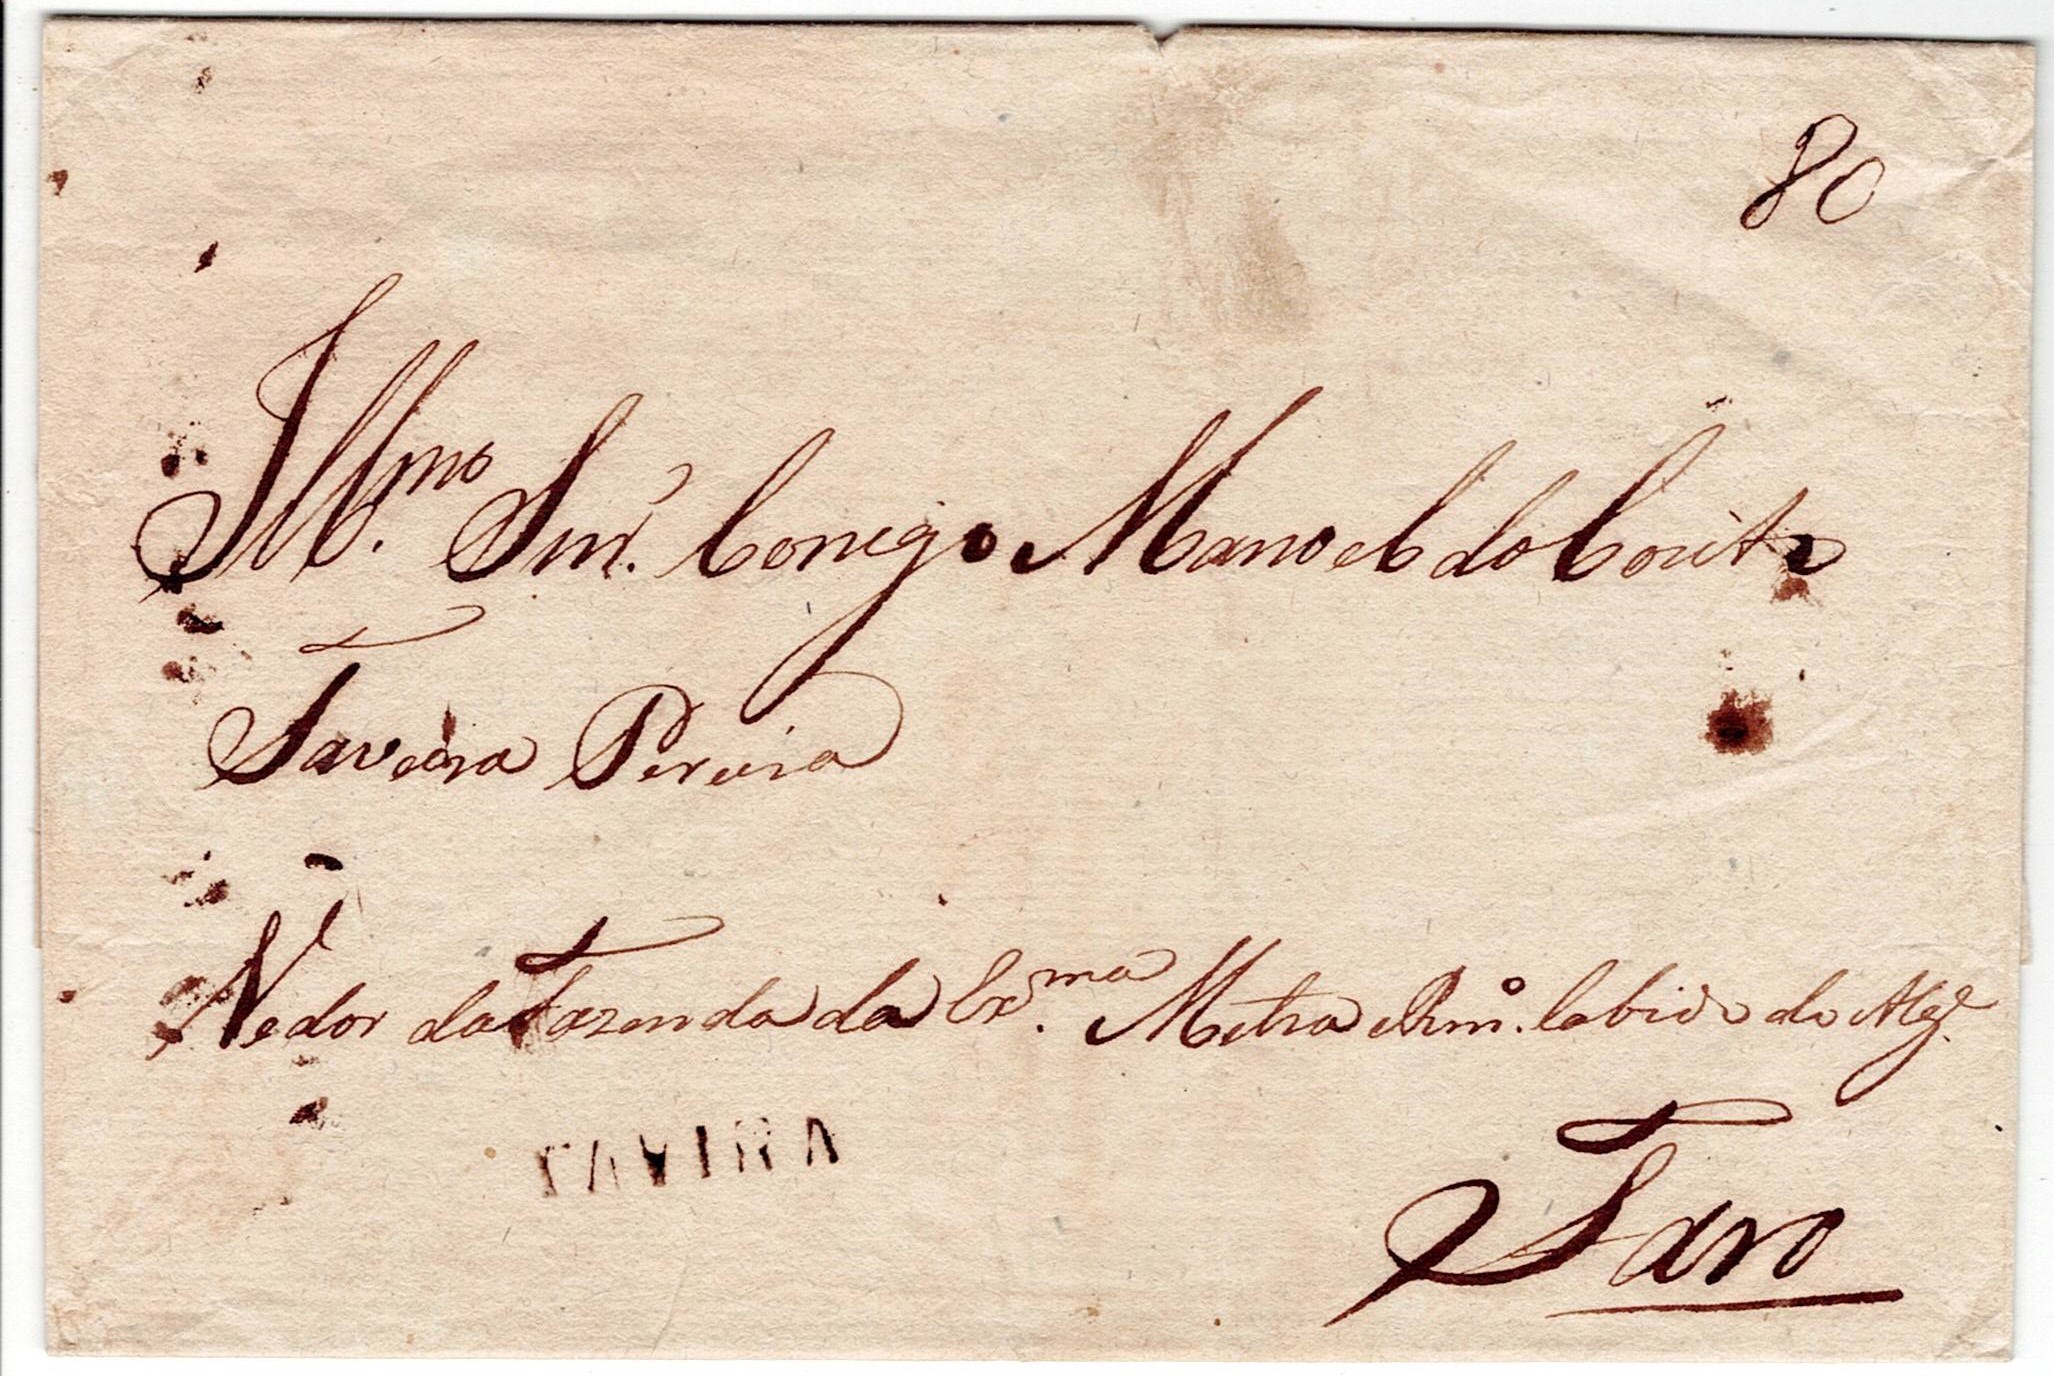 80
Ill.mo Snr. Conego Manoel do Couto
Taveira Pereira
Vedor da Fazenda da Ex.ma Mitra e Rmo. Cabido do Alge.
TAVIRA
Faro